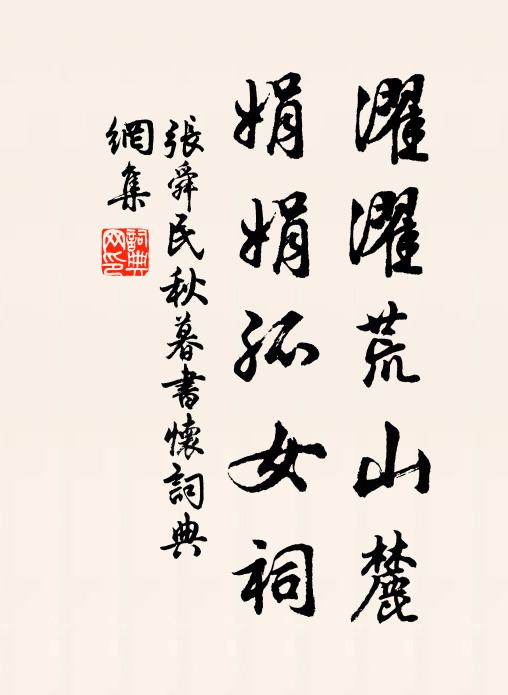 濯濯荒山麓
娟娟孤女祠
張舜民秋暮書懷詞典
網集
詞典
网印